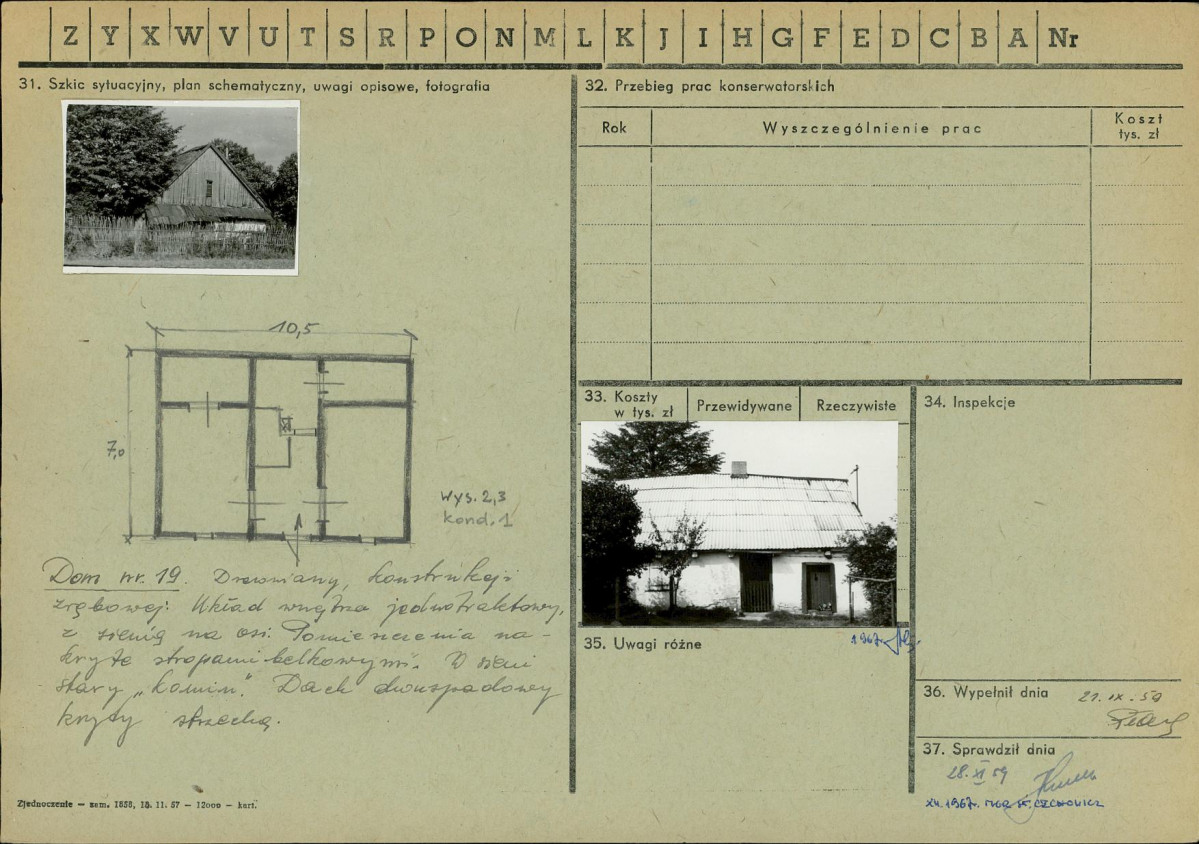 Z Y X W V U T S R P O N M L K J I H G F E D C B A Nr
31. Szkic sytuacyjny, plan schematyczny, uwagi opisowe, fotografia
10,5
7,0
Wys. 2,3
kond. 1
Dom nr. 19. Drewniany, konstrukcji
zrębowej. Układ wnętrza jednotraktowy,
z sienią na osi. Pomieszczenia na-
kryte stropami belkowymi. W sieni
stary „komin". Dach dwuspadowy
kryty strzechą.
Zjednoczenie — zam. 1558, 14. 11. 57 — 12000 — kart.
32. Przebieg prac konserwatorskich
Rok
Wyszczególnienie prac
Koszt
tys. zł
33. Koszty
w tys. zł
Przewidywane
Rzeczywiste
1967r
34. Inspekcje
35. Uwagi różne
36. Wypełnił dnia
21. IX. 59
37. Sprawdził dnia
28. XI 59
XII. 1967r. MGR ST. CZECHOWICZ